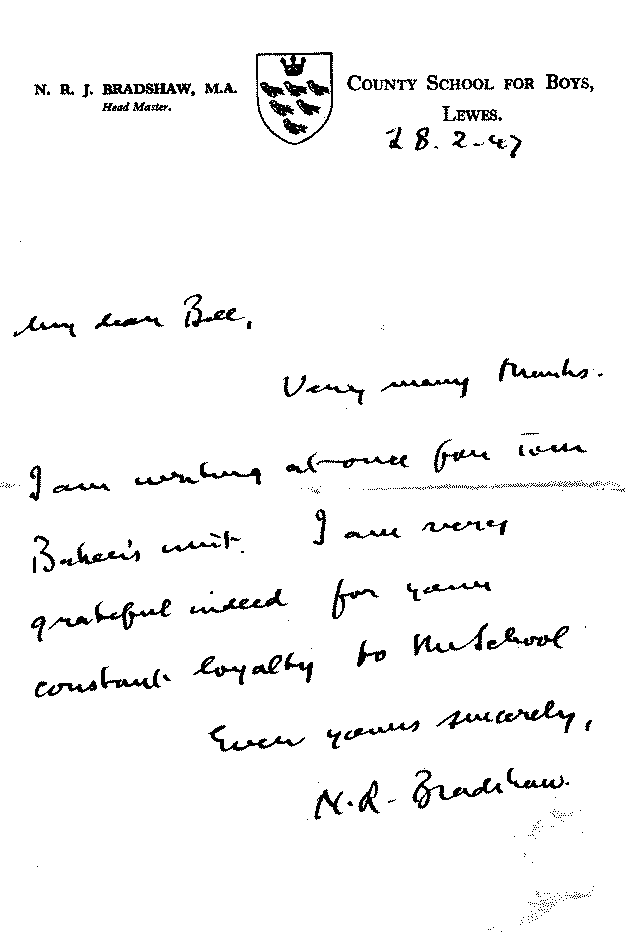 N. R. J. BRADSHAW, M.A.
Head Master.
COUNTY SCHOOL FOR BOYS,
LEWES.
28.2.47
My dear Bill,
Very many thanks.
I am writing at once for Tom
Baker's unit. I am very
grateful indeed for your
constant loyalty to the School
Ever yours sincerely,
N.R. Bradshaw.